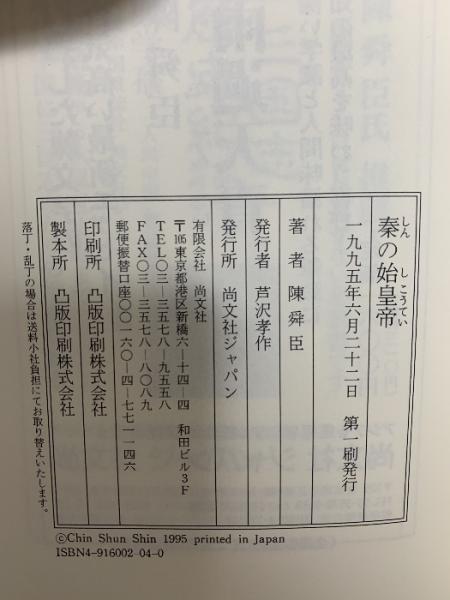 秦の始皇帝
しん しこうてい
一九九五年六月二十二日 第一刷発行
著者 陳舜臣
発行者 芦沢孝作
発行所 尚文社ジャパン
有限会社 尚文社
〒105東京都港区新橋六ー十四ー四 和田ビル3F
TEL〇三ー三五七八ー九五五八
FAX〇三ー三五七八ー八〇八九
郵便振替口座〇〇一六〇ー四ー七七一一四六
印刷所 凸版印刷株式会社
製本所 凸版印刷株式会社
落丁・乱丁の場合は送料小社負担にてお取り替えいたします。
©Chin Shun Shin 1995 printed in Japan
ISBN4-916002-04-0